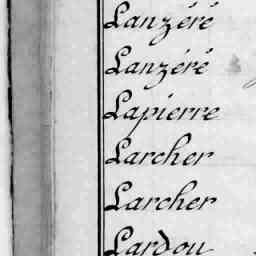 Lanzéré
Lanzéré
Lapierre
Larcher
Larcher
Lardou